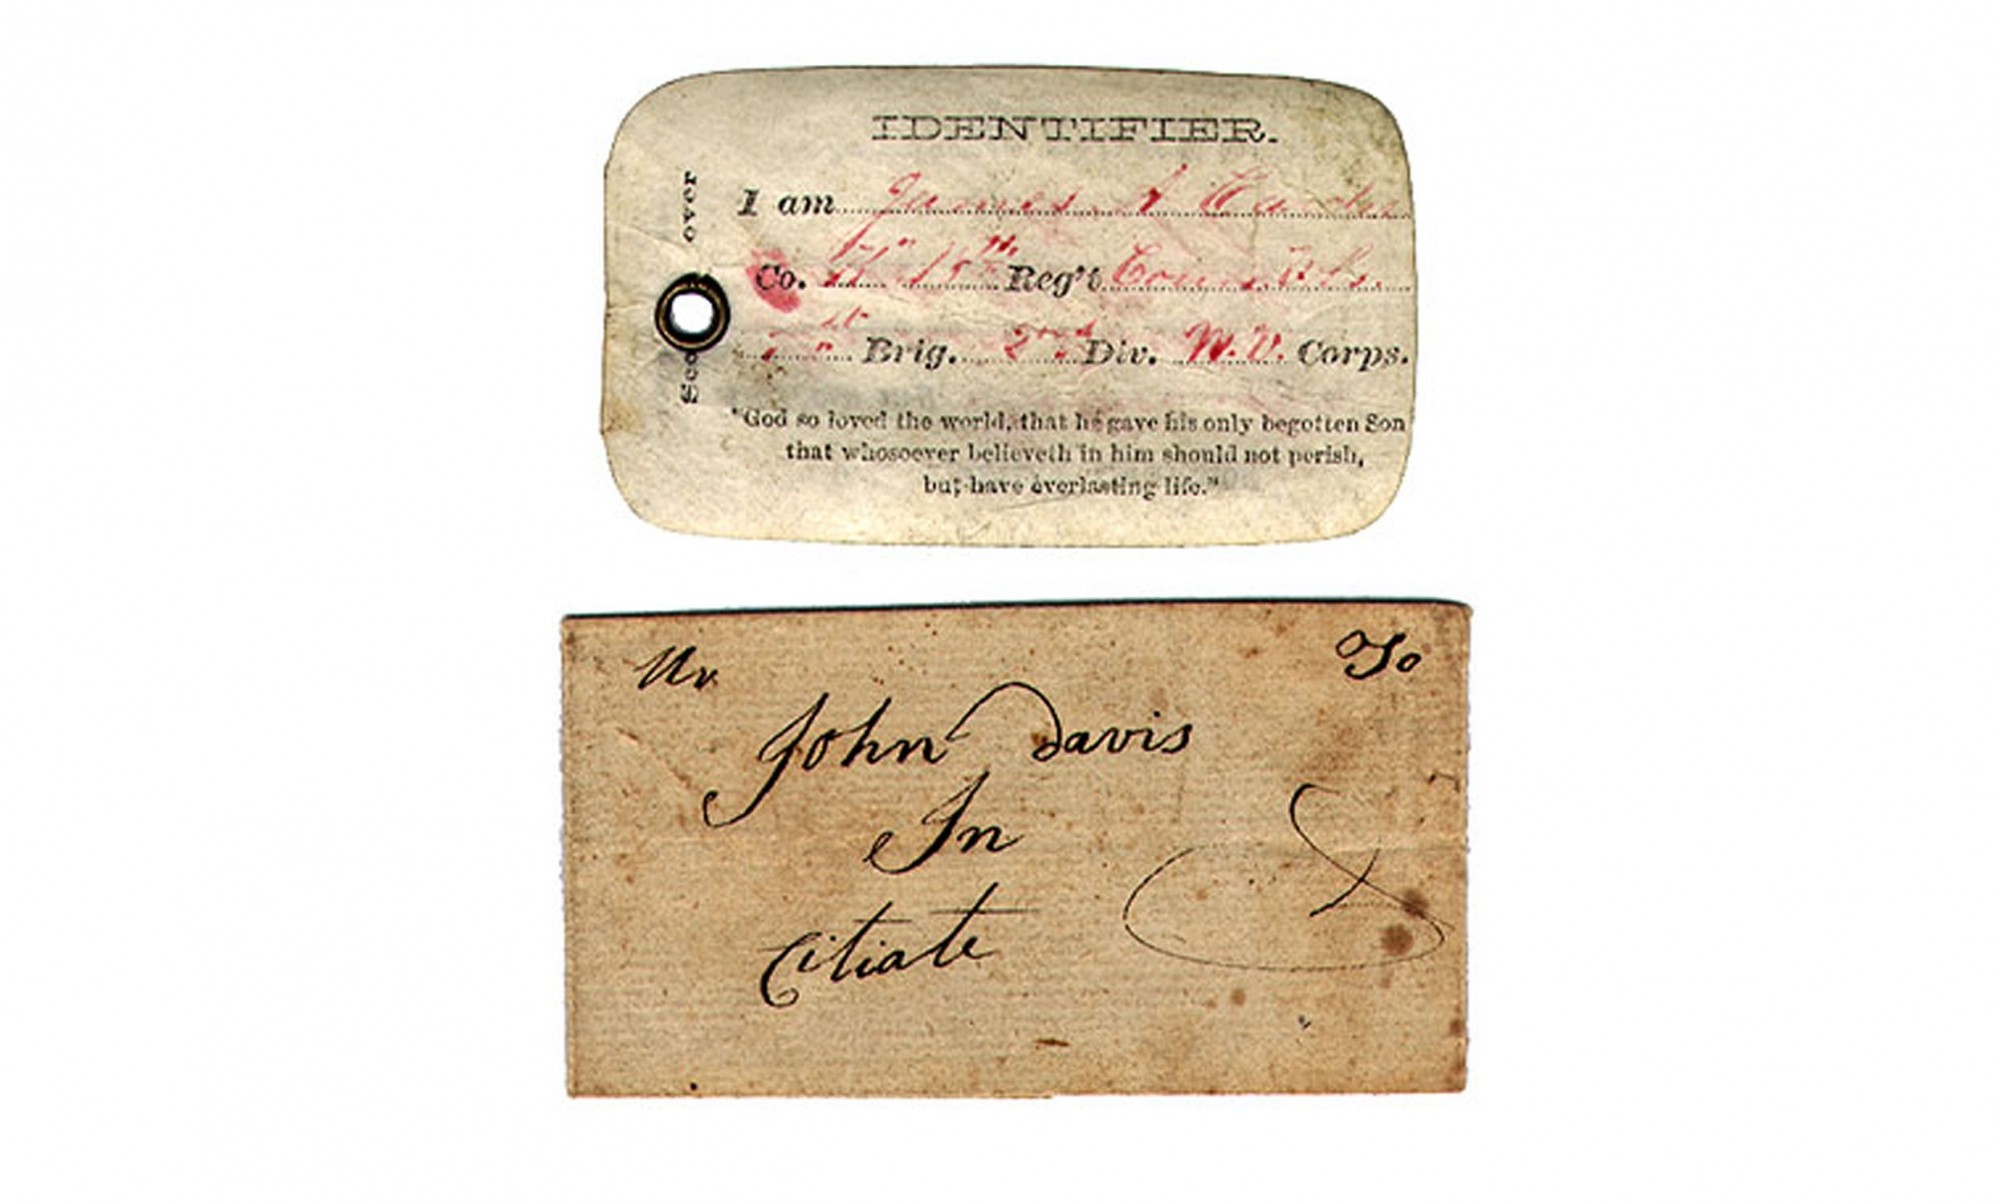 IDENTIFIER.
I am James A
Co. 18th Reg't Conn. Vols.
1st Brig. 2nd Div. W.V. Corps.
"God so loved the world, that he gave his only begotten Son
that whosoever believeth in him should not perish,
but have everlasting life."
See over
Mr To
John Davis
In
Citiate